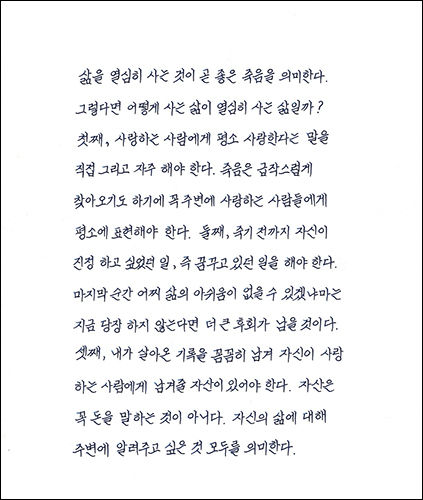 삶을 열심히 사는 것이 곧 좋은 죽음을 의미한다.
그렇다면 어떻게 사는 삶이 열심히 사는 삶일까?
첫째, 사랑하는 사람에게 평소 사랑한다는 말을
직접 그리고 자주 해야 한다. 죽음은 갑작스럽게
찾아오기도 하기에 꼭 주변에 사랑하는 사람들에게
평소에 표현해야 한다. 둘째, 죽기 전까지 자신이
진정 하고 싶었던 일, 즉 꿈꾸고 있던 일을 해야 한다.
마지막 순간 어찌 삶의 아쉬움이 없을 수 있겠냐마는
지금 당장 하지 않는다면 더 큰 후회가 남을 것이다.
셋째, 내가 살아온 기록을 꼼꼼히 남겨 자신이 사랑
하는 사람에게 남겨줄 자산이 있어야 한다. 자산은
꼭 돈을 말하는 것이 아니다. 자신의 삶에 대해
주변에 알려주고 싶은 것 모두를 의미한다.